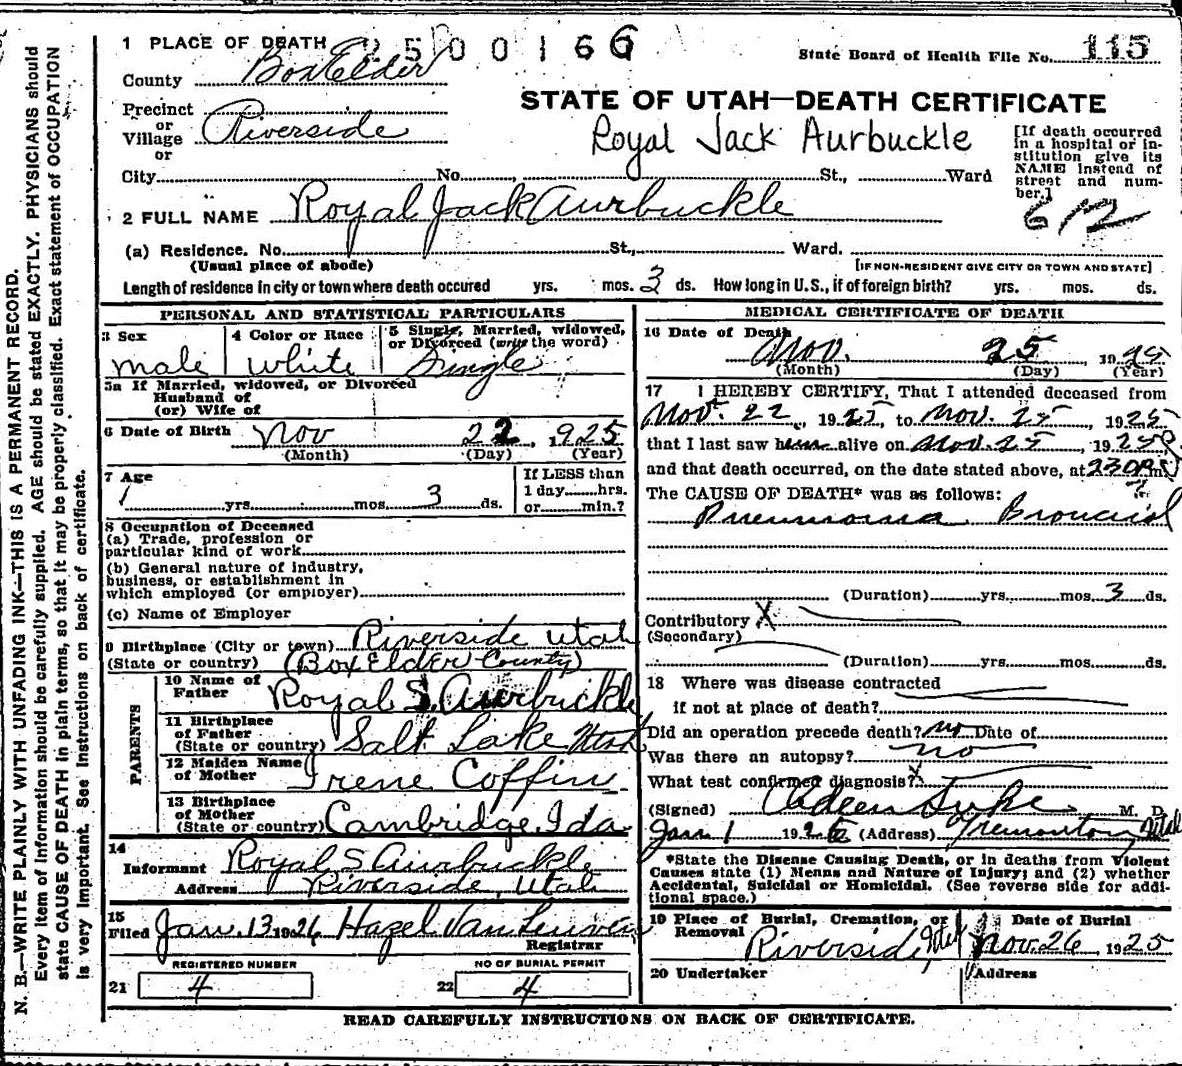 1 PLACE OF DEATH 2500166
State Board of Health File No. 115
County Box Elder
STATE OF UTAH—DEATH CERTIFICATE
Precinct
or
Village Riverside
or
Royal Jack Aurbuckle
[If death occurred in a hospital or institution give its NAME instead of street and number.]
City No. St., Ward
612
2 FULL NAME Royal Jack Aurbuckle
(a) Residence. No. St., Ward.
(Usual place of abode)
[IF NON-RESIDENT GIVE CITY OR TOWN AND STATE]
Length of residence in city or town where death occured yrs. mos. 3 ds. How long in U.S., if of foreign birth? yrs. mos. ds.
PERSONAL AND STATISTICAL PARTICULARS
3 Sex
male
4 Color or Race
White
5 Single, Married, widowed, or Divorced (write the word)
Single
5a If Married, widowed, or Divorced
Husband of
(or) Wife of
6 Date of Birth Nov 22, 1925
(Month) (Day) (Year)
7 Age
yrs. mos. 3 ds.
If LESS than
1 day hrs.
or min.?
8 Occupation of Deceased
(a) Trade, profession or
particular kind of work
(b) General nature of industry,
business, or establishment in
which employed (or employer)
(c) Name of Employer
9 Birthplace (City or town) Riverside Utah
(State or country) (Box Elder County)
PARENTS
10 Name of
Father Royal S. Aurbuckle
11 Birthplace
of Father
(State or country) Salt Lake Utah
12 Maiden Name
of Mother Irene Coffin
13 Birthplace
of Mother
(State or country) Cambridge, Ida
14
Informant Royal S Aurbuckle
Address Riverside, Utah
15
Filed Jan. 13 1926 Hazel Van Leuven
Registrar
REGISTERED NUMBER
21 4
NO OF BURIAL PERMIT
22 4
MEDICAL CERTIFICATE OF DEATH
16 Date of Death
Nov. 25 1925
(Month) (Day) (Year)
17 I HEREBY CERTIFY, That I attended deceased from
Nov. 22, 1925, to Nov. 25, 1925
that I last saw him alive on Nov. 25, 1925
and that death occurred, on the date stated above, at 230 m
The CAUSE OF DEATH* was as follows:
Pneumonia Broncial
(Duration) yrs. mos. 3 ds.
Contributory X
(Secondary)
(Duration) yrs. mos. ds.
18 Where was disease contracted
if not at place of death?
Did an operation precede death? no Date of
Was there an autopsy? no
What test confirmed diagnosis? X
(Signed) M. D.
Jan 1 1926 (Address) Tremonton, Utah
*State the Disease Causing Death, or in deaths from Violent
Causes state (1) Menns and Nature of Injury; and (2) whether
Accidental, Suicidal or Homicidal. (See reverse side for addi-
tional space.)
19 Place of Burial, Cremation, or
Removal Riverside, Utah
Date of Burial
Nov. 26 1925
20 Undertaker
Address
READ CAREFULLY INSTRUCTIONS ON BACK OF CERTIFICATE.
N. B.—WRITE PLAINLY WITH UNFADING INK—THIS IS A PERMANENT RECORD.
Every item of Information should be carefully supplied. AGE should be stated EXACTLY. PHYSICIANS should
state CAUSE OF DEATH in plain terms, so that it may be properly classified. Exact statement of OCCUPATION
is very important. See Instructions on back of certificate.